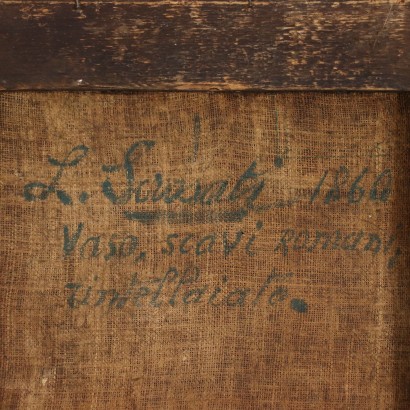 L. Scrosati 1860
Vaso, scavi romani,
rintellaiato.